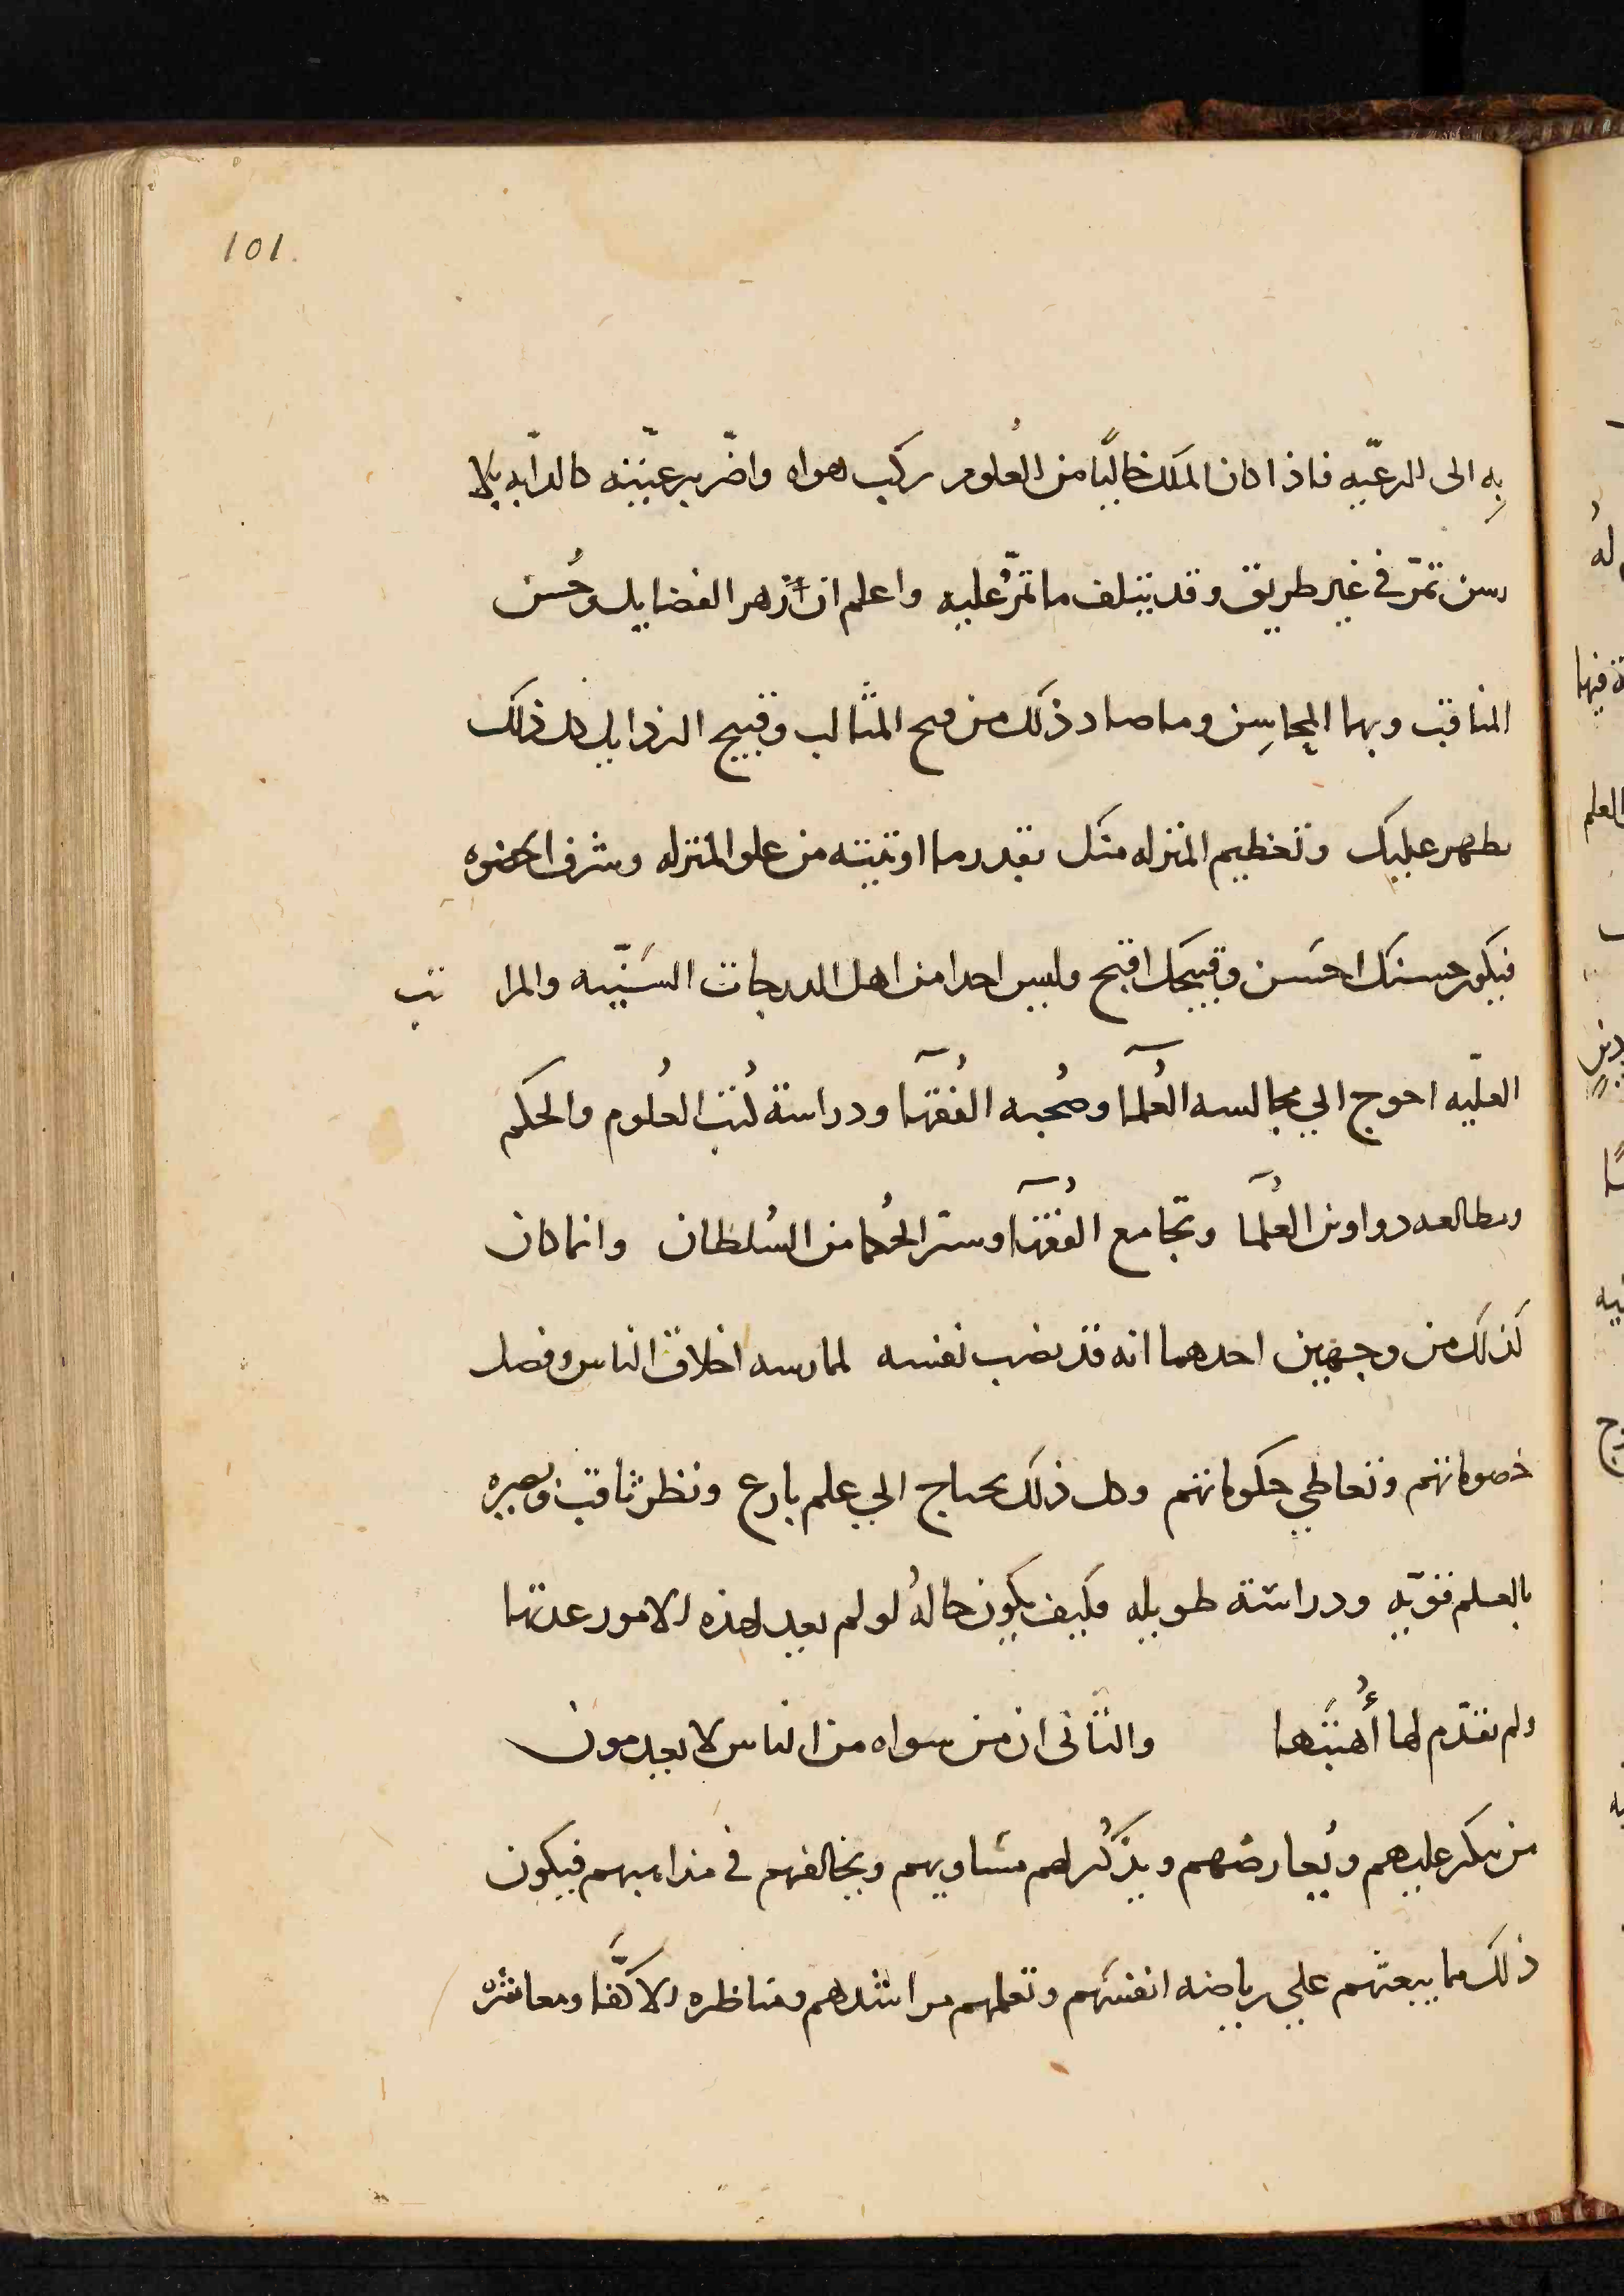 101.
بِه الى الرعيّه فاذا كان الملك خاليًا من العلوم ركب هواه واضّر برعيّته كالدابّه بلا
رسن تمرّ في غير طريق وقد يتلف ما تمرُّ عليه واعلم ان ازهر الفضايل وحُسن
المناقب وبها المحاسِن وما صاد ذلك من قبح المثالب وقبيح الرذايل كل ذلك
يظهر عليك وتعظيم المنزله منك بقدر ما اوتيته من علو المنزله وشرف الحضوه
فيكون حسنك احسَن وقبيحك اقبح وليس احدا من اهل الدرجات السَنيّه والمراتب
العليّه احوج الي مجالسه العُلمآ وصُحبه الفُقهآ ودراسة كُتب العُلوم والحكم
ومطالعه دواوين العُلمآ وتجامع الفُقهآ وستر الحُكما من السُلطان وانما كان
كذلك من وجهين احدهما انه قد نصب نفسه لممارسه اخلاق الناس وفصل
خصوماتهم وتعاطي حكوماتهم وكل ذلك يحتاج الي علم بارع ونظر ثاقب وبصيره
بالعلم قويّه ودراسة طويله فكيف يكون حالهُ لو لم يعد لهذه الامور عدتها
ولم يقدّم لها أُهبَتها والثاني ان من سواه من الناس لا يعدمون
من ينكر عليهم ويُعارضهم ويذكُر لهم مساويهم ويخالفهم في مذاهبهم فيكون
ذلك مما يبعثهم علي رياضه انفسهم وتعلمهم مراشدهم ومناظره الاكفّا ومعاشره